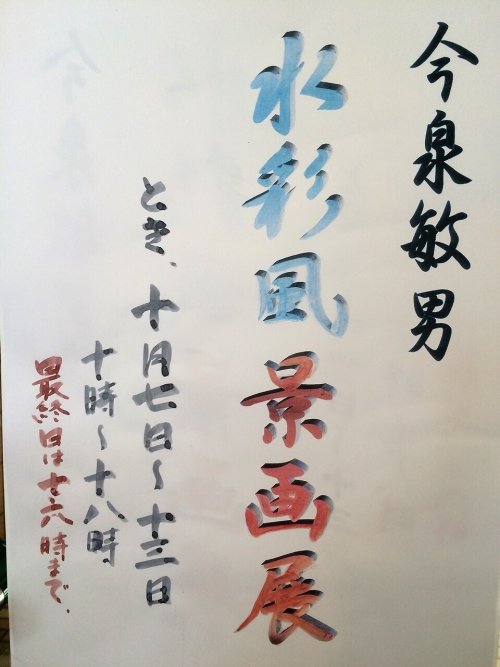 今泉敏男
水彩風景画展
とき、十月七日～十三日
十時～十八時
最終日は十六時まで.